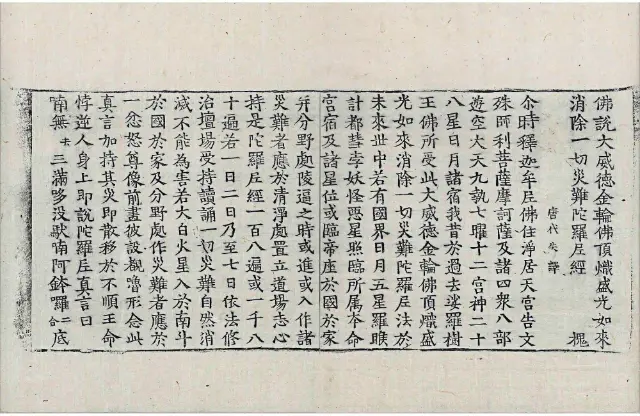 佛說大威德金輪佛頂熾盛光如來
消除一切災難陀羅尼經 槐
唐代失譯
尒時釋迦牟尼佛住淨居天宮告文
殊師利菩薩摩訶薩及諸四衆八部
遊空大天九執七曜十二宮神二十
八星日月諸宿我昔於過去娑羅樹
王佛所受此大威德金輪佛頂熾盛
光如來消除一切災難陀羅尼法於
未來世中若有國界日月五星羅睺
計都彗孛妖怪惡星照臨所属本命
宮宿及諸星位或臨帝座於國於家
并分野處陵逼之時或進或入作諸
災難者應於清淨處置立道場志心
持是陀羅尼經一百八遍或一千八
十遍若一日二日乃至七日依法修
治壇場受持讀誦一切災難自然消
滅不能為害若大白火星入於南斗
於國於家及分野處作災難者應於
一忿怒尊像前畫彼設覩嚕形念此
真言加持其災即散移於不順王命
悖逆人身上即說陀羅尼真言曰
曩無 三滿多没馱喃阿鉢囉二合底